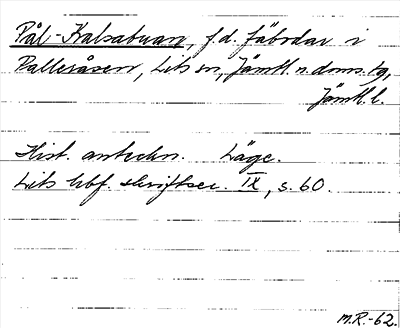 Pål-Kalsabuan, f.d. fäbodar i
Kallråsen, Lits sn, Jämtl. n. doms. tg,
Jämtl. l.
Hist. anteckn. Läge.
Lits hbf. skriftser. IX, s. 60.
M.R.-62.